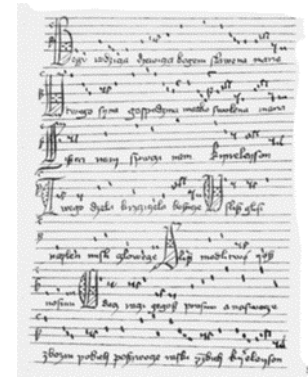 Bogv rodzicza dzewicza bogem slawena maria
twego syna gospodzina matko swolena maria
nam spwczi nam Kyrieleyson
Twego dzela bozicze Uslisz glosi
naplen misli czlowecze Slisz modlitwo yosz
nosimi raczi gegosz prosimi a naswecze
zbozni pobith kyrieleyson